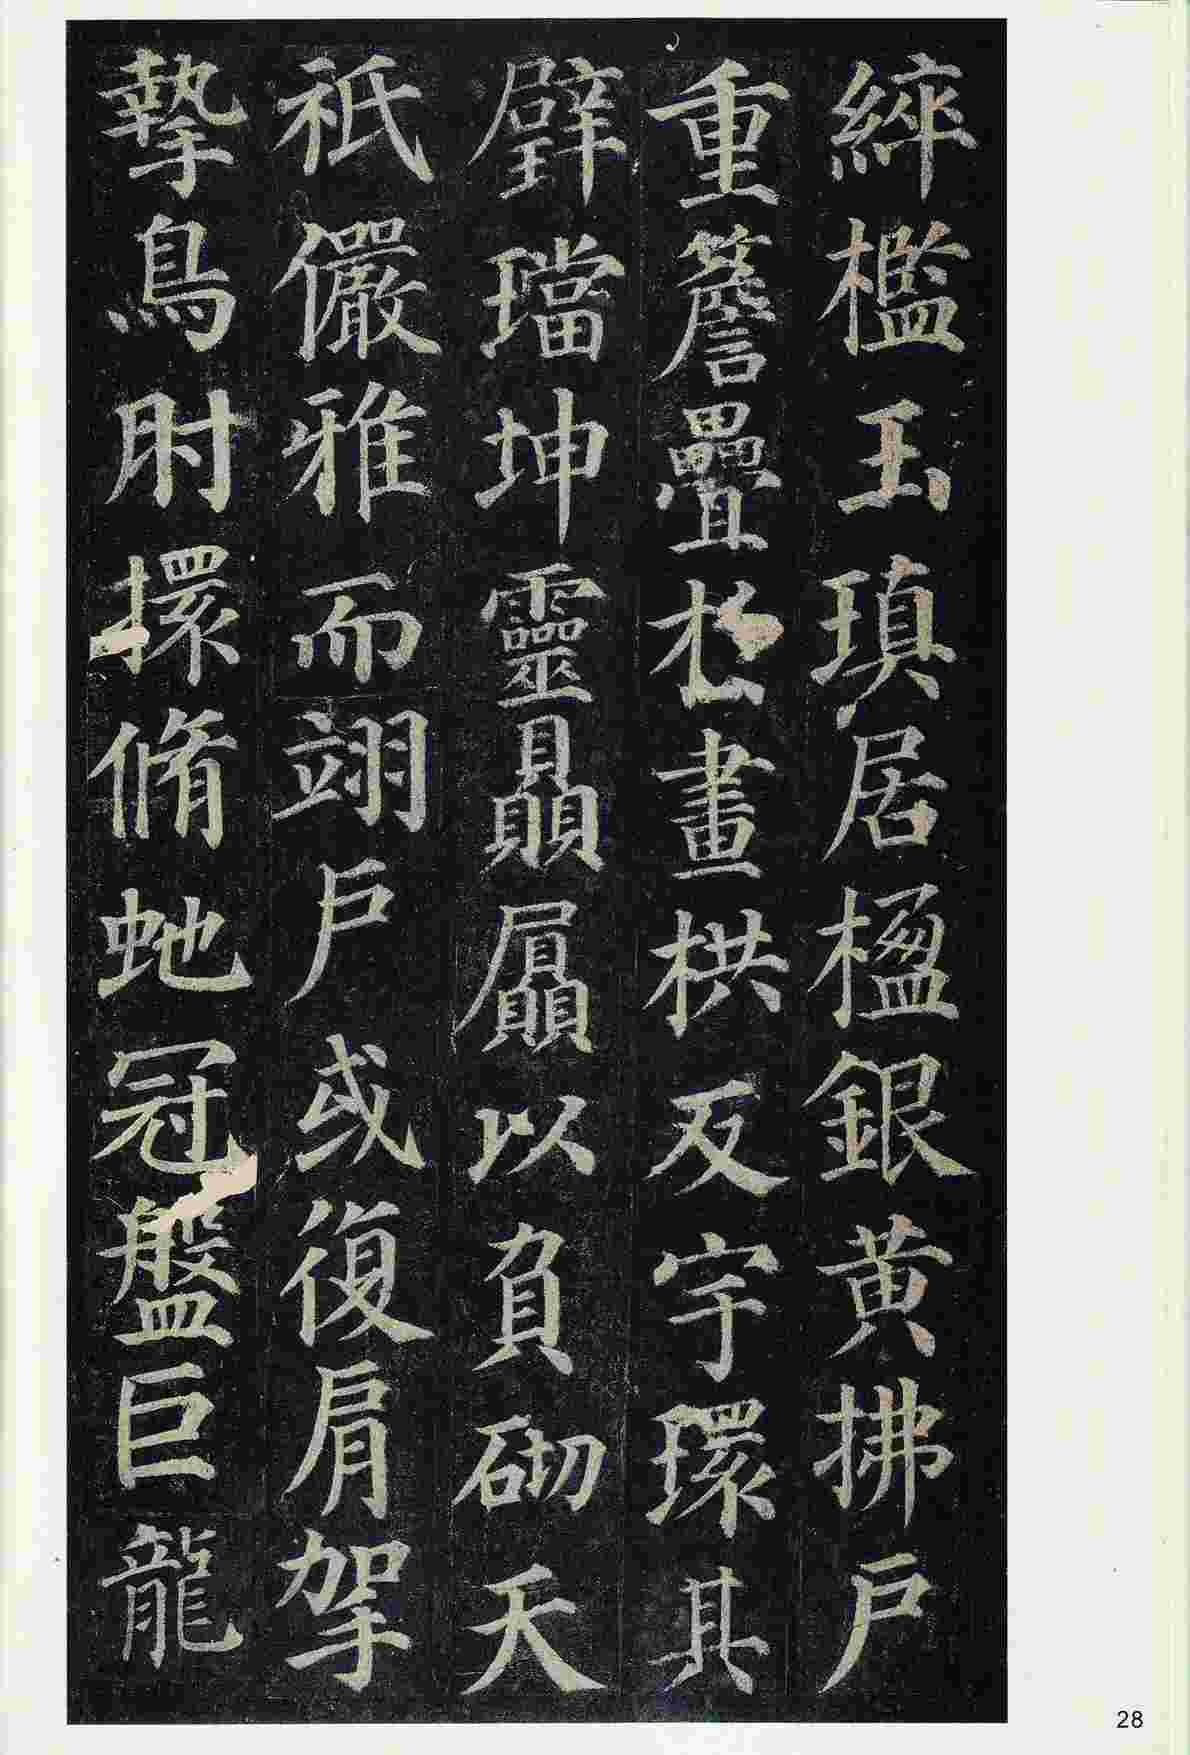 綷檻玉瑱居楹銀黃拂戶
重簷疊於畫栱反宇環其
璧璫坤靈贔屭以負砌天
祇儼雅而翊戶或復肩挐
摯鳥肘擐脩虵冠盤巨龍
28